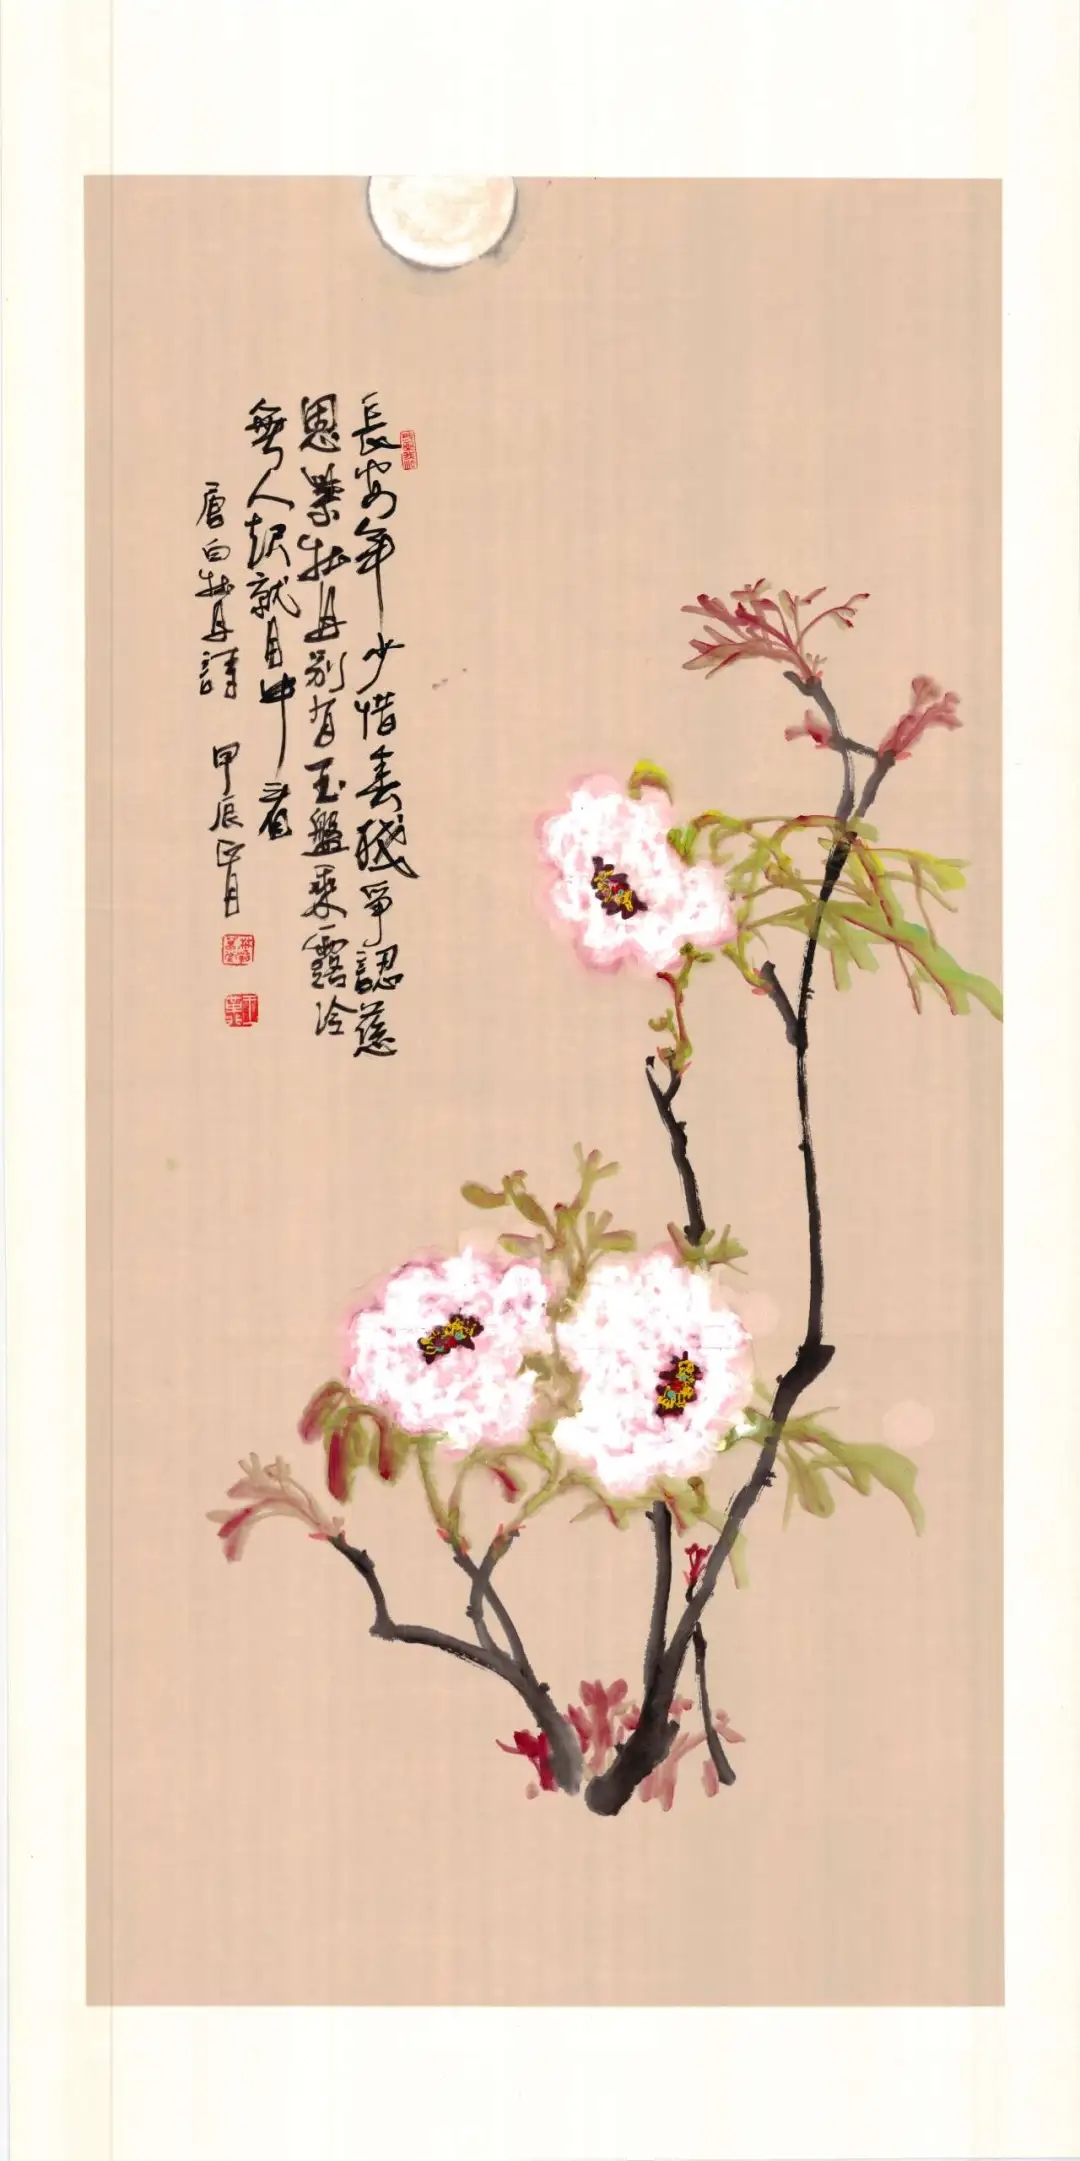 長安年少惜春殘爭認慈
恩紫牡丹別有玉盤乘露冷
無人起就月中看
唐白牡丹詩 甲辰正月